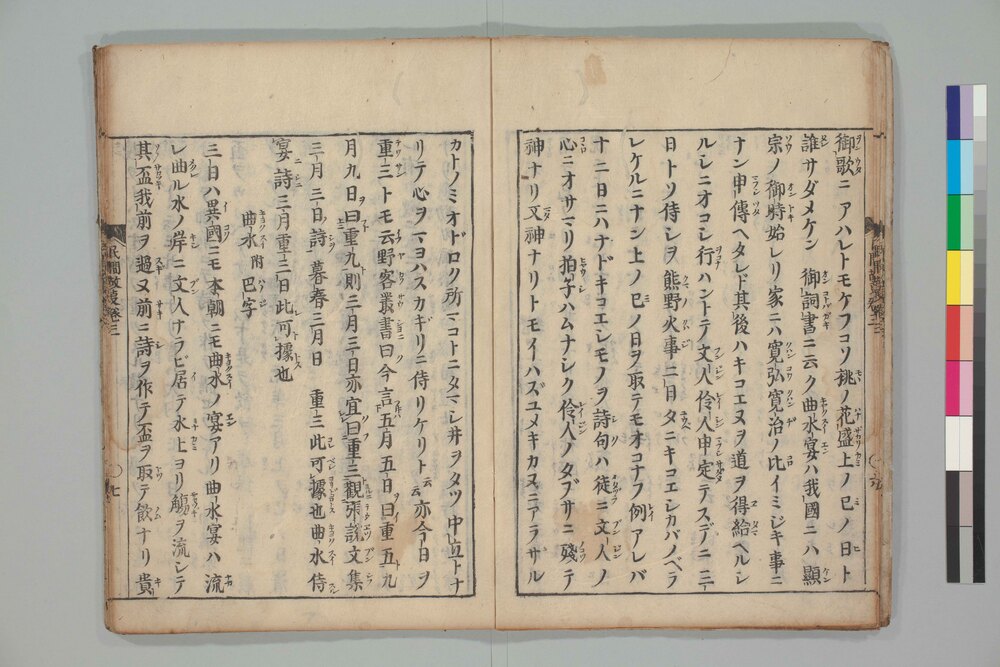 御歌ニアハレトモケフコソ桃ノ花盛上ノ巳ノ日ト
誰サダメケン 御詞書ニ云ク曲水宴ハ我國ニハ顯
宗ノ御時始レリ家ニハ寛弘寛治ノ比イミジキ事ニ
ナン申傳ヘタレド其後ハキコエヌヲ道ヲ得給ヘルシ
ルシニオコシ行ハントテ文人伶人申定テスデニ三
日トソ侍シヲ熊野火事二日タニキコエシカバノベラ
レケルニナシ上ノ巳ノ日ヲ取テモオコナフ例アレバ
十二日ニハナドキコエシモノヲ詩句ハ徒ニ文人ノ
心ニオサマリ拍子ハムナシク伶人ノタブサニ殘テ
神ナリ又神ナリトモイハズユメキカヌニアラザル
カトノミオドロク所マコトニタマシ井ヲタツ中立トナ
リテ心ヲマヨハスカギリニ侍リケリト云云亦今日ヲ
重三トモ云野客叢書曰今言五月五日ヲ曰重五九
月九日ヲ曰重九則三月三日亦宜曰重三觀張説文集
三月三日ノ詩暮春三月日 重三此可據也曲水侍
宴詩三月重三日此可據也
曲水 附 巴字
三日ハ異國ニモ本朝ニモ曲水ノ宴アリ曲水宴ハ流
レ曲ル水ノ岸ニ文人ナラビ居テ水上ヨリ觴ヲ流シテ
其盃我前ヲ過ヌ前ニ詩ヲ作テ盃ヲ取テ飲ナリ貴
民間歳時卷三
七